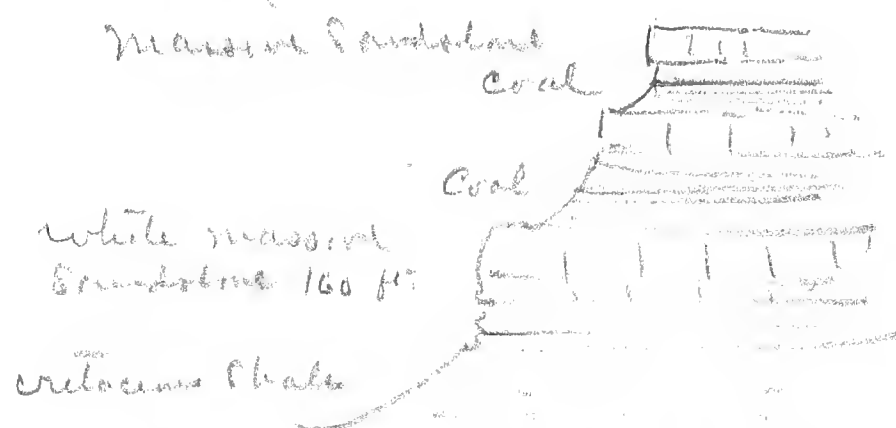 Massive Sandstone
Coal
Coal
White massive
Sandstone 160 ft
Cretaceous Shale